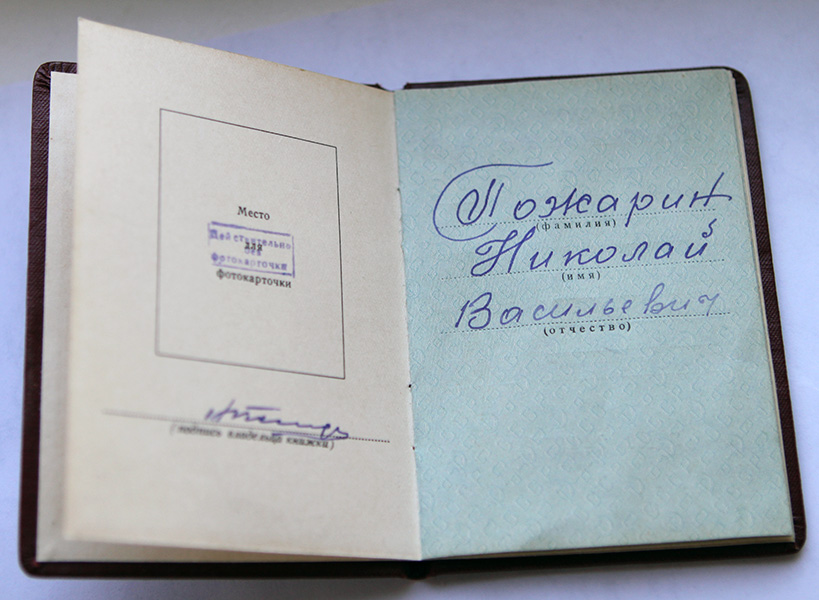 Место
для
фотокарточки
Действительно
без
фотокарточки
(подпись владельца книжки)
Пожарин
(фамилия)
Николай
(имя)
Васильевич
(отчество)